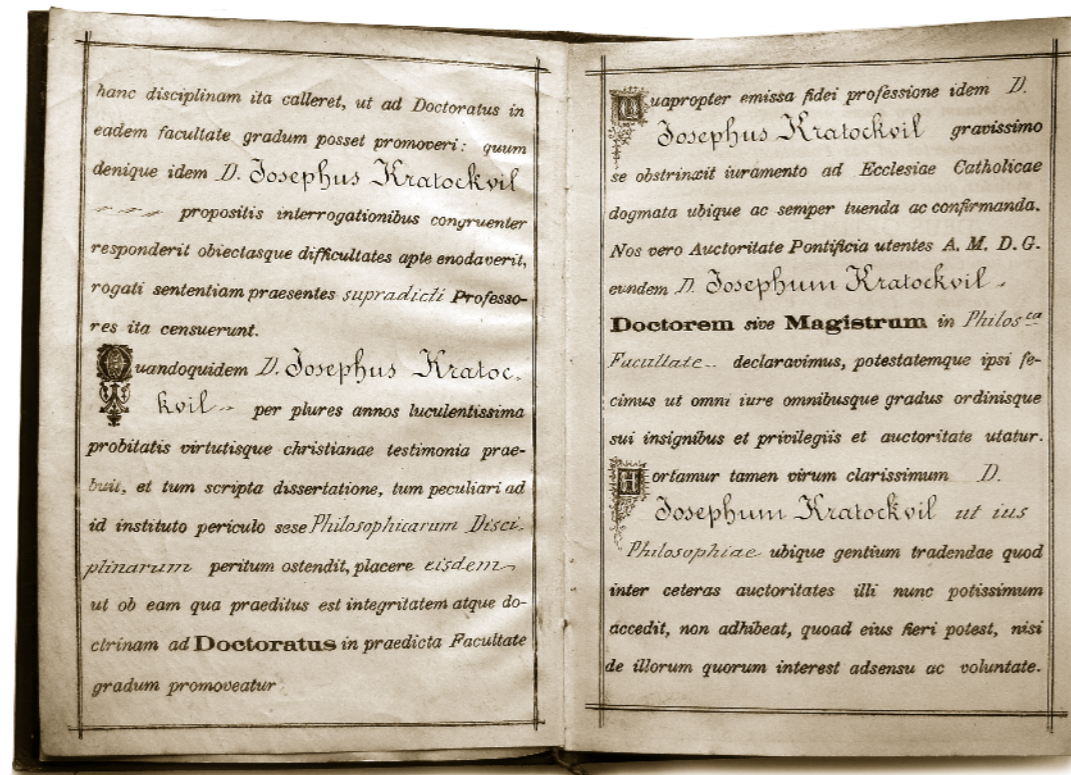 hanc disciplinam ita calleret, ut ad Doctoratus in
eadem facultate gradum posset promoveri: quum
denique idem D. Josephus Kratockvil
propositis interrogationibus congruenter
responderit obiectasque difficultates apte enodaverit,
rogati sententiam praesentes supradicti Professo-
res ita censuerunt.
Quandoquidem D. Josephus Kratoc-
kvil per plures annos luculentissima
probitatis virtutisque christianae testimonia prae-
buit, et tum scripta dissertatione, tum peculiari ad
id instituto periculo sese Philosophicarum Disci-
plinarum peritum ostendit, placere eisdem
ut ob eam qua praeditus est integritatem atque do-
ctrinam ad Doctoratus in praedicta Facultate
gradum promoveatur
Quapropter emissa fidei professione idem D.
Josephus Kratockvil gravissimo
se obstrinxit iuramento ad Ecclesiae Catholicae
dogmata ubique ac semper tuenda ac confirmanda.
Nos vero Auctoritate Pontificia utentes A. M. D. G.
eundem D. Josephum Kratockvil
Doctorem sive Magistrum in Philos.ca
Facultate declaravimus, potestatemque ipsi fe-
cimus ut omni iure omnibusque gradus ordinisque
sui insignibus et privilegiis et auctoritate utatur.
Hortamur tamen virum clarissimum D.
Josephum Kratockvil ut ius
Philosophiae ubique gentium tradendae quod
inter ceteras auctoritates illi nunc potissimum
accedit, non adhibeat, quoad eius fieri potest, nisi
de illorum quorum interest adsensu ac voluntate.